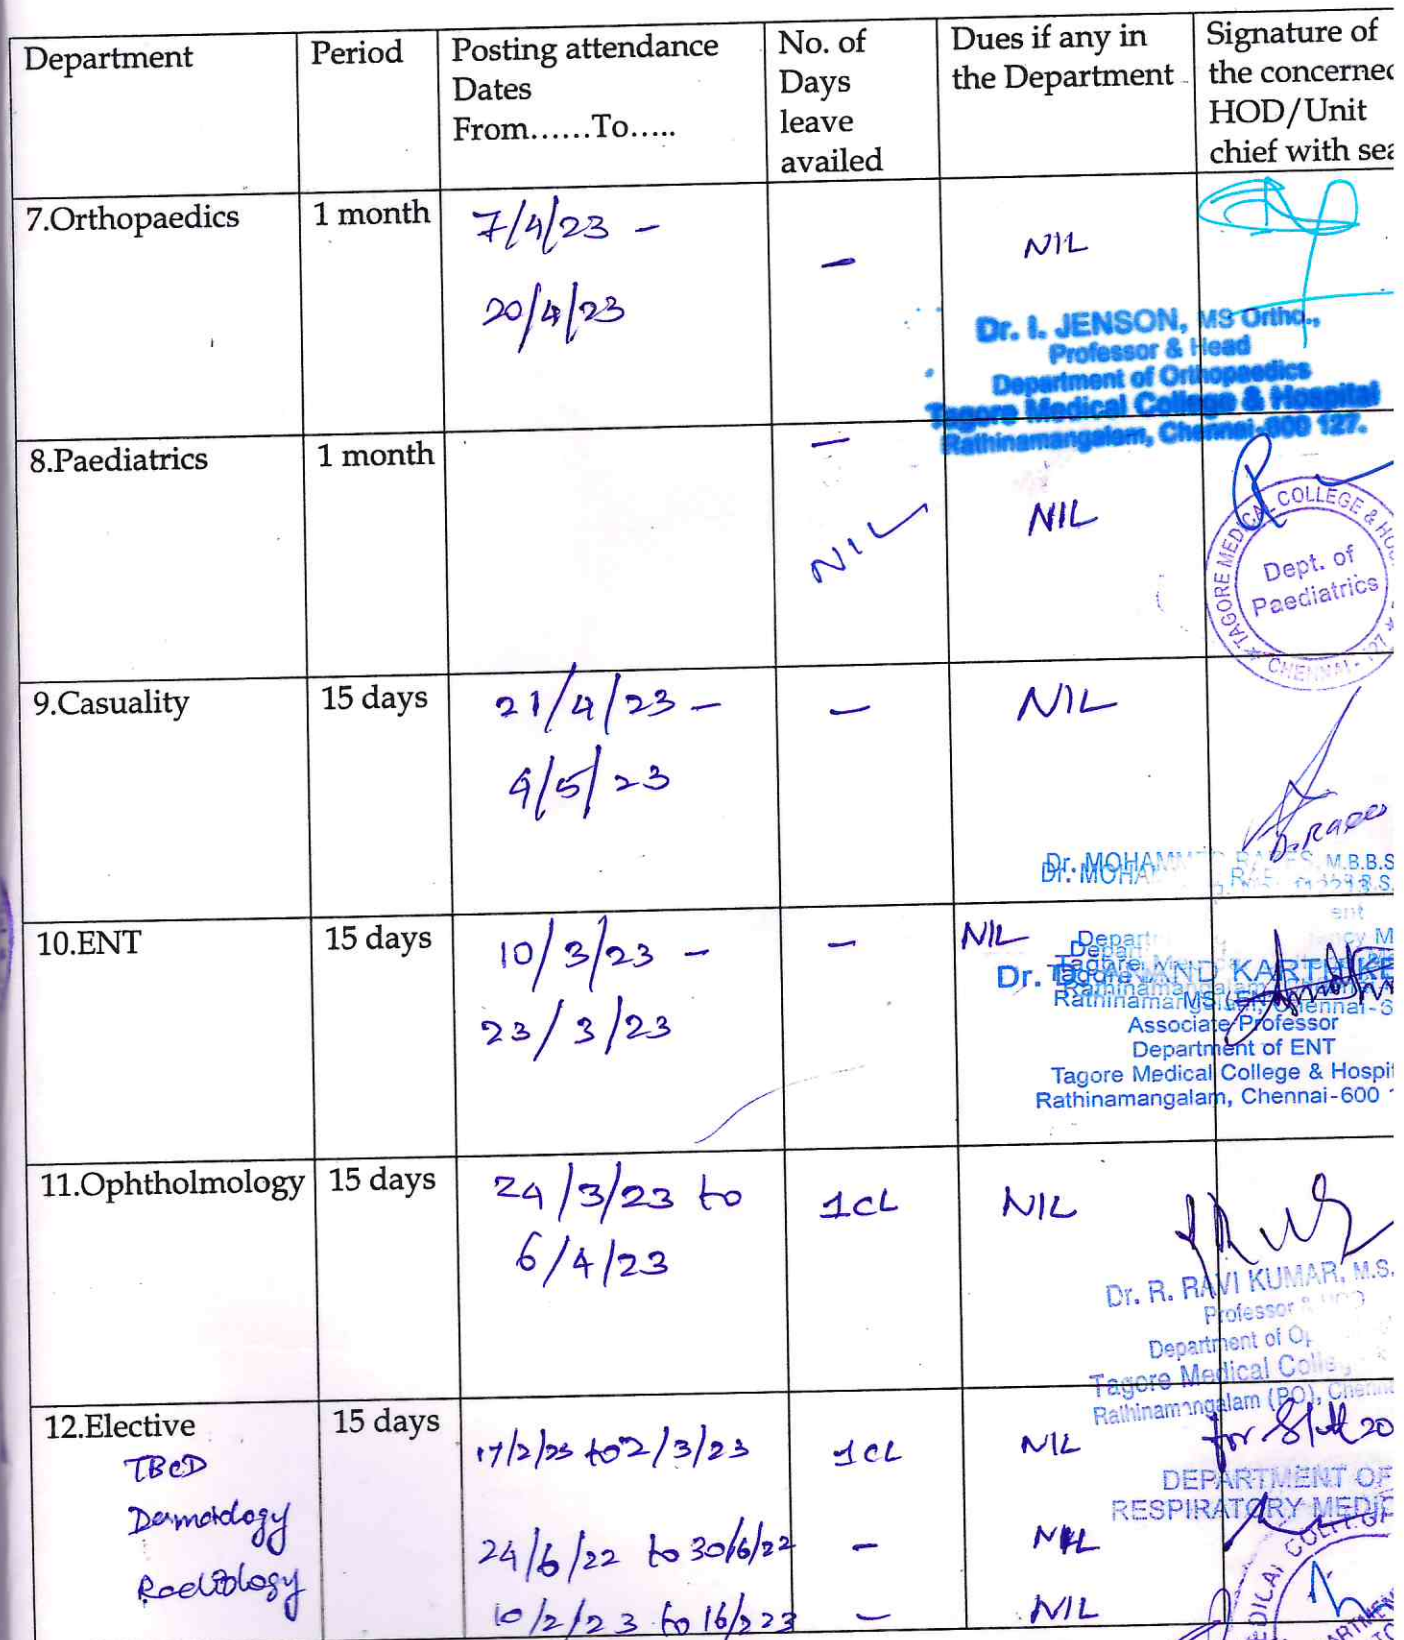 Department
Period
Posting attendance
Dates
From......To.....
No. of
Days
leave
availed
Dues if any in
the Department
Signature of
the concerned
HOD/Unit
chief with sea
7.Orthopaedics
1 month
7/4/23 –
20/4/23
–
NIL
Dr. I. JENSON, MS Ortho.,
Professor & Head
Department of Orthopaedics
Tagore Medical College & Hospital
Rathinamangalam, Chennai-600 127.
8.Paediatrics
1 month
–
NIL
NIL
TAGORE MEDICAL COLLEGE & HO
Dept. of
Paediatrics
CHENNAI - 127
9.Casuality
15 days
21/4/23 –
4/5/23
–
NIL
Dr. MOHAM M.B.B.S
10.ENT
15 days
10/3/23 –
23/3/23
–
NIL
Dr. ANAND KARTHIKE
Associate Professor
Department of ENT
Tagore Medical College & Hospit
Rathinamangalam, Chennai-600
11.Ophtholmology
15 days
24/3/23 to
6/4/23
1CL
NIL
Dr. R. RAVI KUMAR, M.S.
Professor
Department of
Tagore Medical
Rathinamangalam (PO),
12.Elective
15 days
TBCD
17/2/23 to 2/3/23
1CL
NIL
for
DEPARTMENT OF
RESPIRATORY MEDIC
Dermatology
24/6/22 to 30/6/22
–
NIL
Radiology
10/2/23 to 16/2/23
–
NIL